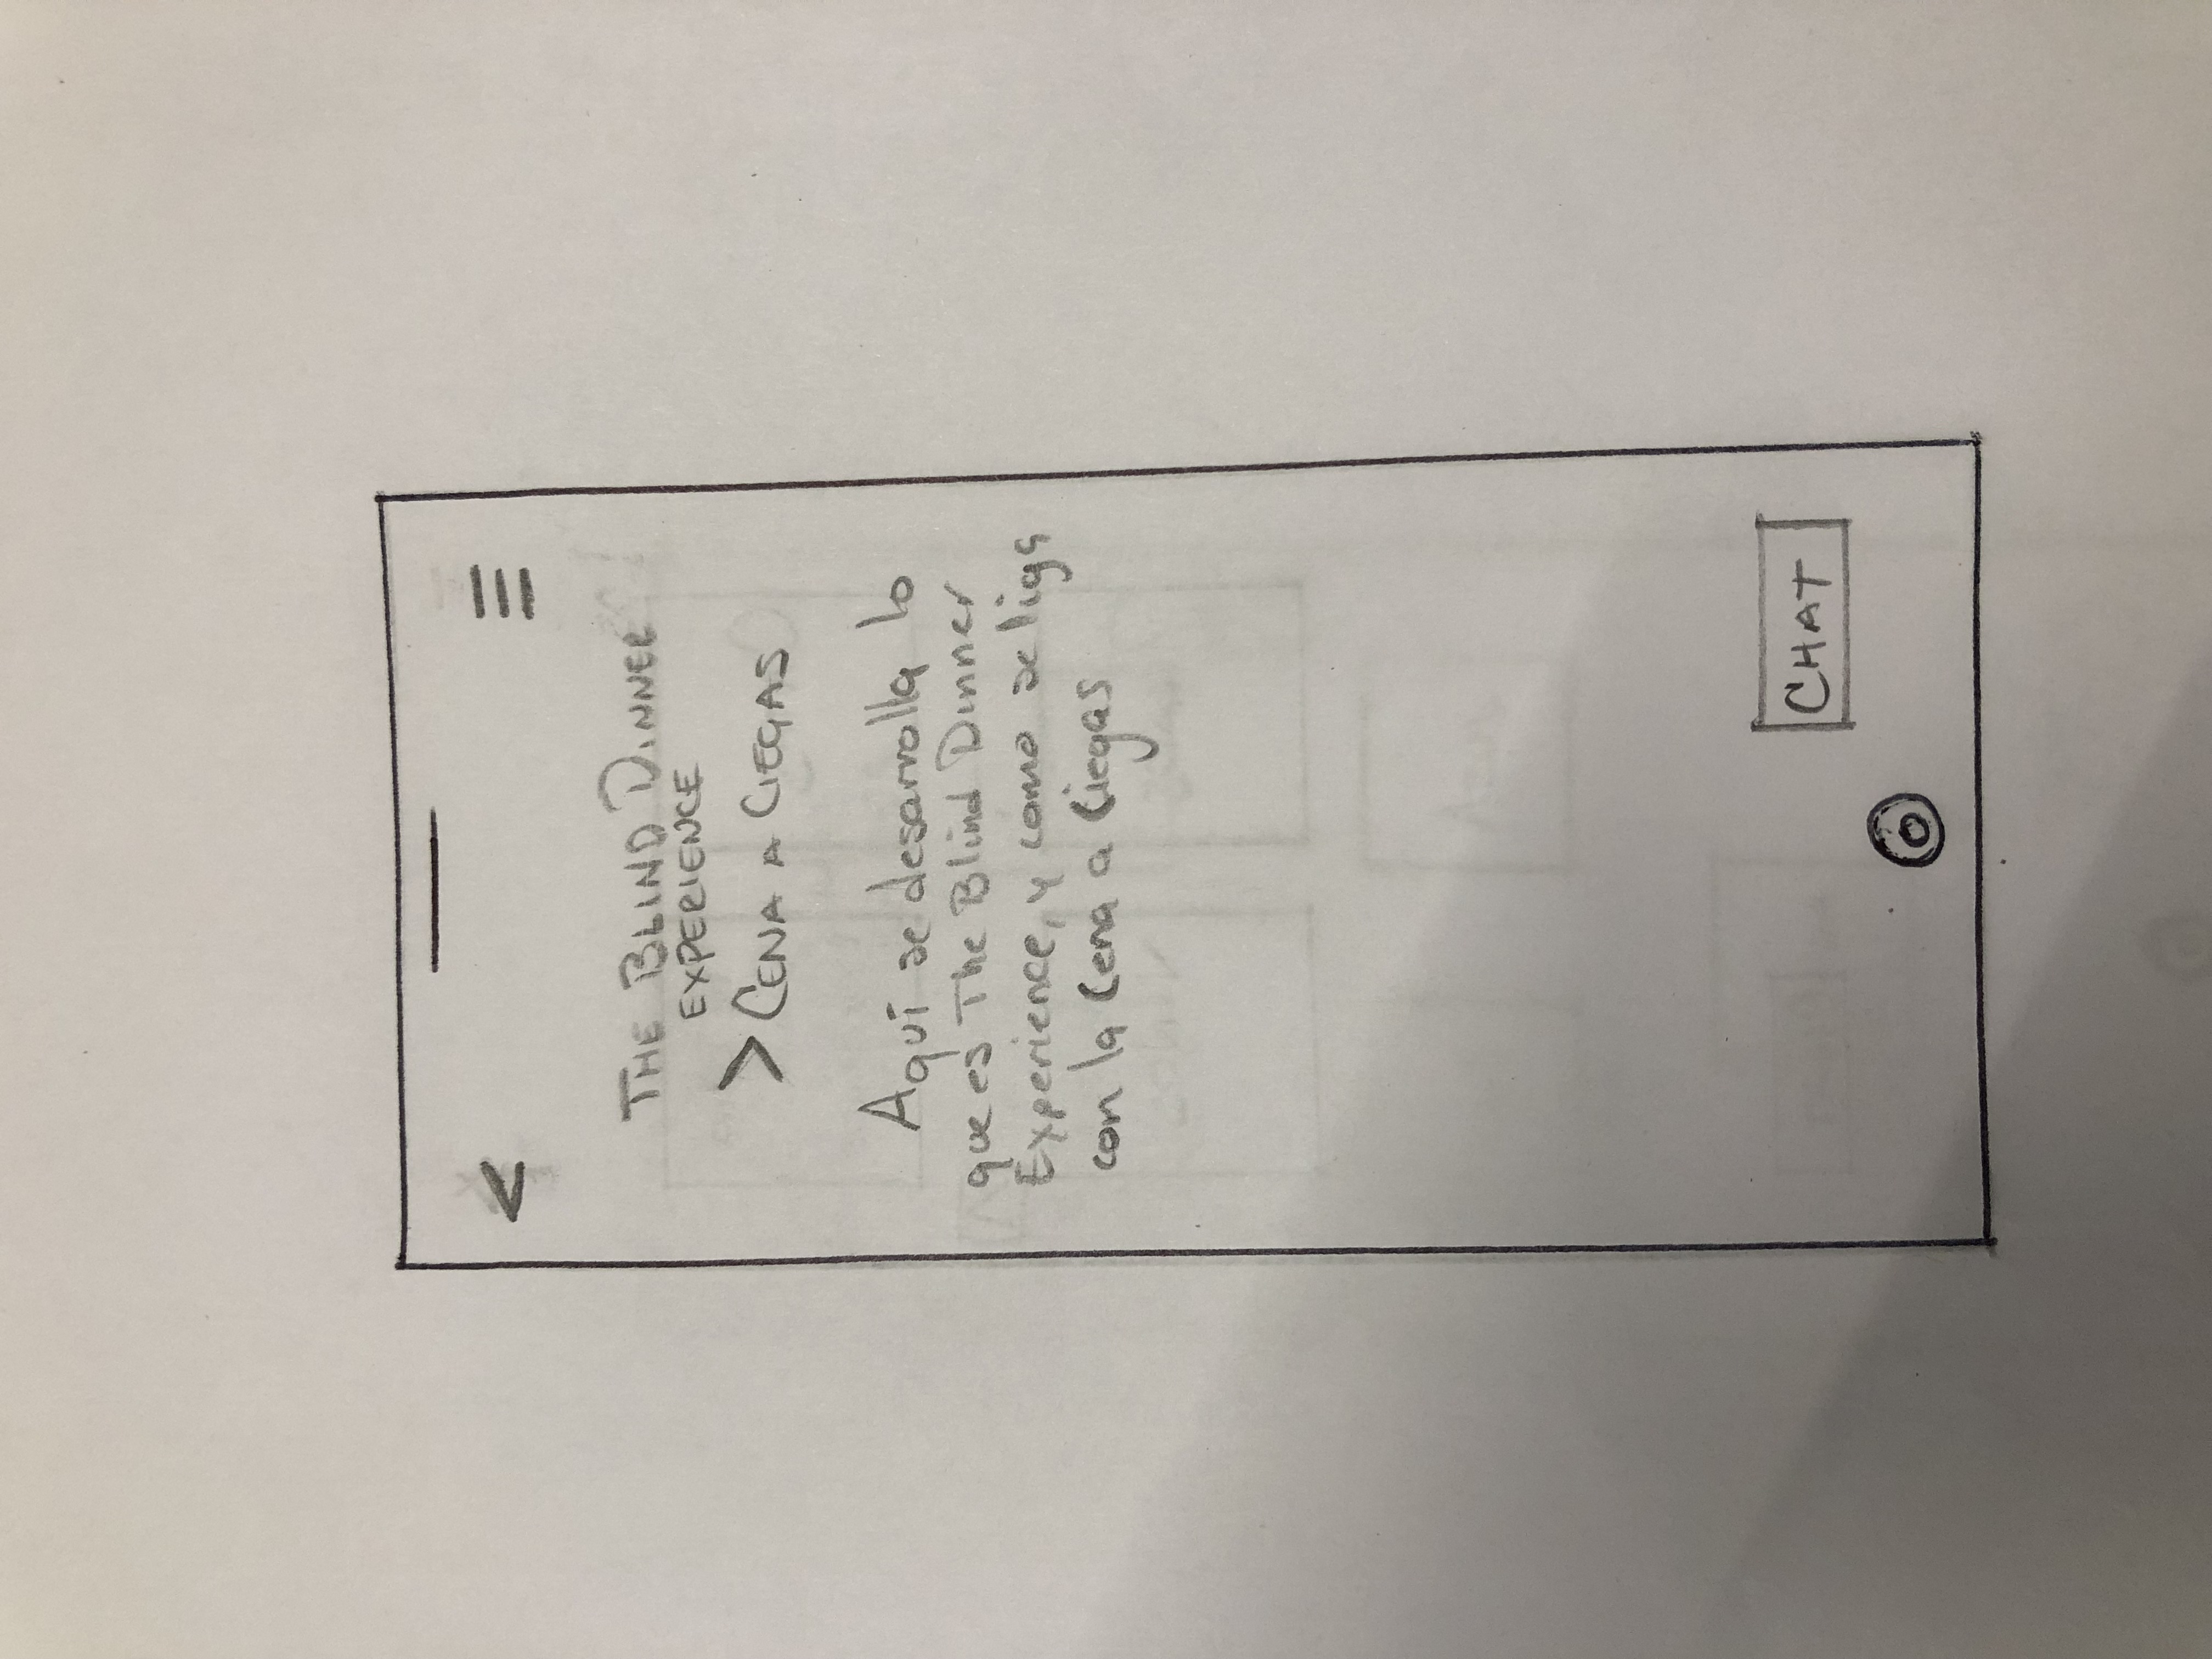 <
THE BLIND DINNER
EXPERIENCE
> CENA A CIEGAS
Aquí se desarrolla lo
que es The Blind Dinner
Experience, y como se liga
con la Cena a Ciegas
CHAT